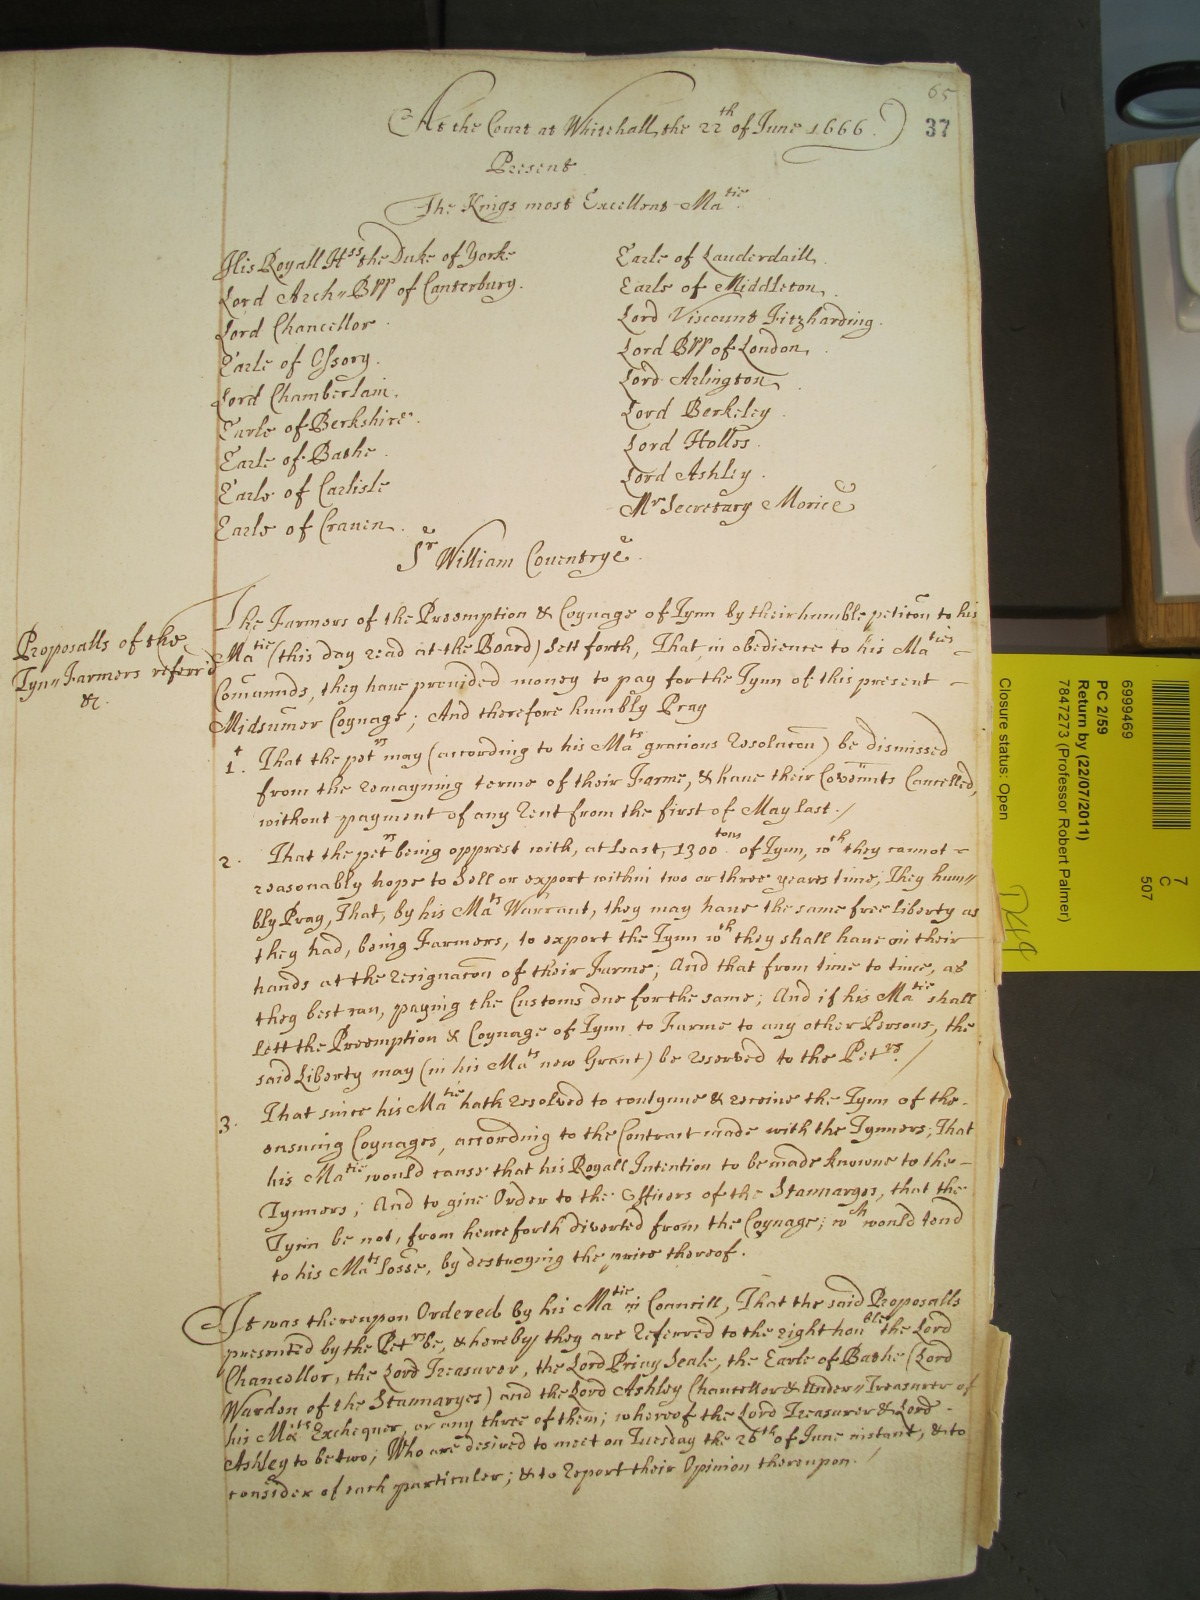 65
37
At the Court at Whitehall the 22th of June 1666.
Present
The Kings most Excellent Matie
His Royall Hss the Duke of Yorke
Lord Arch-Bpp of Canterbury.
Lord Chancellor.
Earle of Ossory.
Lord Chamberlain.
Earle of Berkshire.
Earle of Bathe.
Earle of Carlisle
Earle of Craven.
Earle of Lauderdaill.
Earle of Middleton.
Lord Viscount Fitzharding.
Lord Bpp of London.
Lord Arlington.
Lord Berkeley.
Lord Holles.
Lord Ashley.
Mr Secretary Morice
Sr William Couentrye.
Proposalls of the
Tyn-Farmers referr'd
&c.
The Farmers of the Preemption & Coynage of Tynn by their humble peticon to his
Matie (this day read at the Board) Sett forth, That in obedience to his Maties
Comannds, they haue prouided money to pay for the Tynn of this present
Midsumer Coynage; And therefore humbly Pray
1. That the petrs may (according to his Mats gracious Resolucon) be dismissed
from the remayning terme of their Farme, & haue their Covennts Cancelled,
without payment of any Rent from the first of May last./
2. That the petrs being opprest with, at least, 1300 tons of Tynn, wch they cannot
reasonably hope to Sell or export within two or three yeares time, They hum-
bly Pray, That, by his Mats Warrant, they may haue the same free liberty as
they had, being Farmers, to export the Tynn wch they shall haue in their
hands at the resignacon of their Farme; And that from time to time, as
they best can, paying the Customs due for the same; And if his Matie shall
Lett the Preemption & Coynage of Tynn to Farme to any other Persons, the
said Liberty may (in his Mats new Grant) be reserved to the Petrs./
3. That since his Matie hath resolved to contynue & receiue the Tynn of the
ensuing Coynages, according to the Contract made with the Tynners; That
his Matie would cause that his Royall Intention to be made knowne to the
Tynners; And to giue Order to the Officers of the Stannaryes, that the
Tynn be not, from henceforth diverted from the Coynage; wch would tend
to his Mats losse, by destroying the price thereof.
It was thereupon Ordered by his Matie in Councill, That the said Proposalls
presented by the Petrs be, & hereby they are Referred to the right honble the Lord
Chancellor, the Lord Treasurer, the Lord Priuy Seale, the Earle of Bathe (Lord
Warden of the Stannaryes) and the Lord Ashley Chancellor & Under-Treasurer of
his Mats Exchequer, or any three of them; whereof the Lord Treasurer & Lord
Ashley to be two; Who are desired to meet on Tuesday the 26th of June instant, & to
consider of each particuler; & to Report their Opinion thereupon./
7
C
507
6999469
PC 2/59
Return by (22/07/2011)
7847273 (Professor Robert Palmer)
Closure status: Open